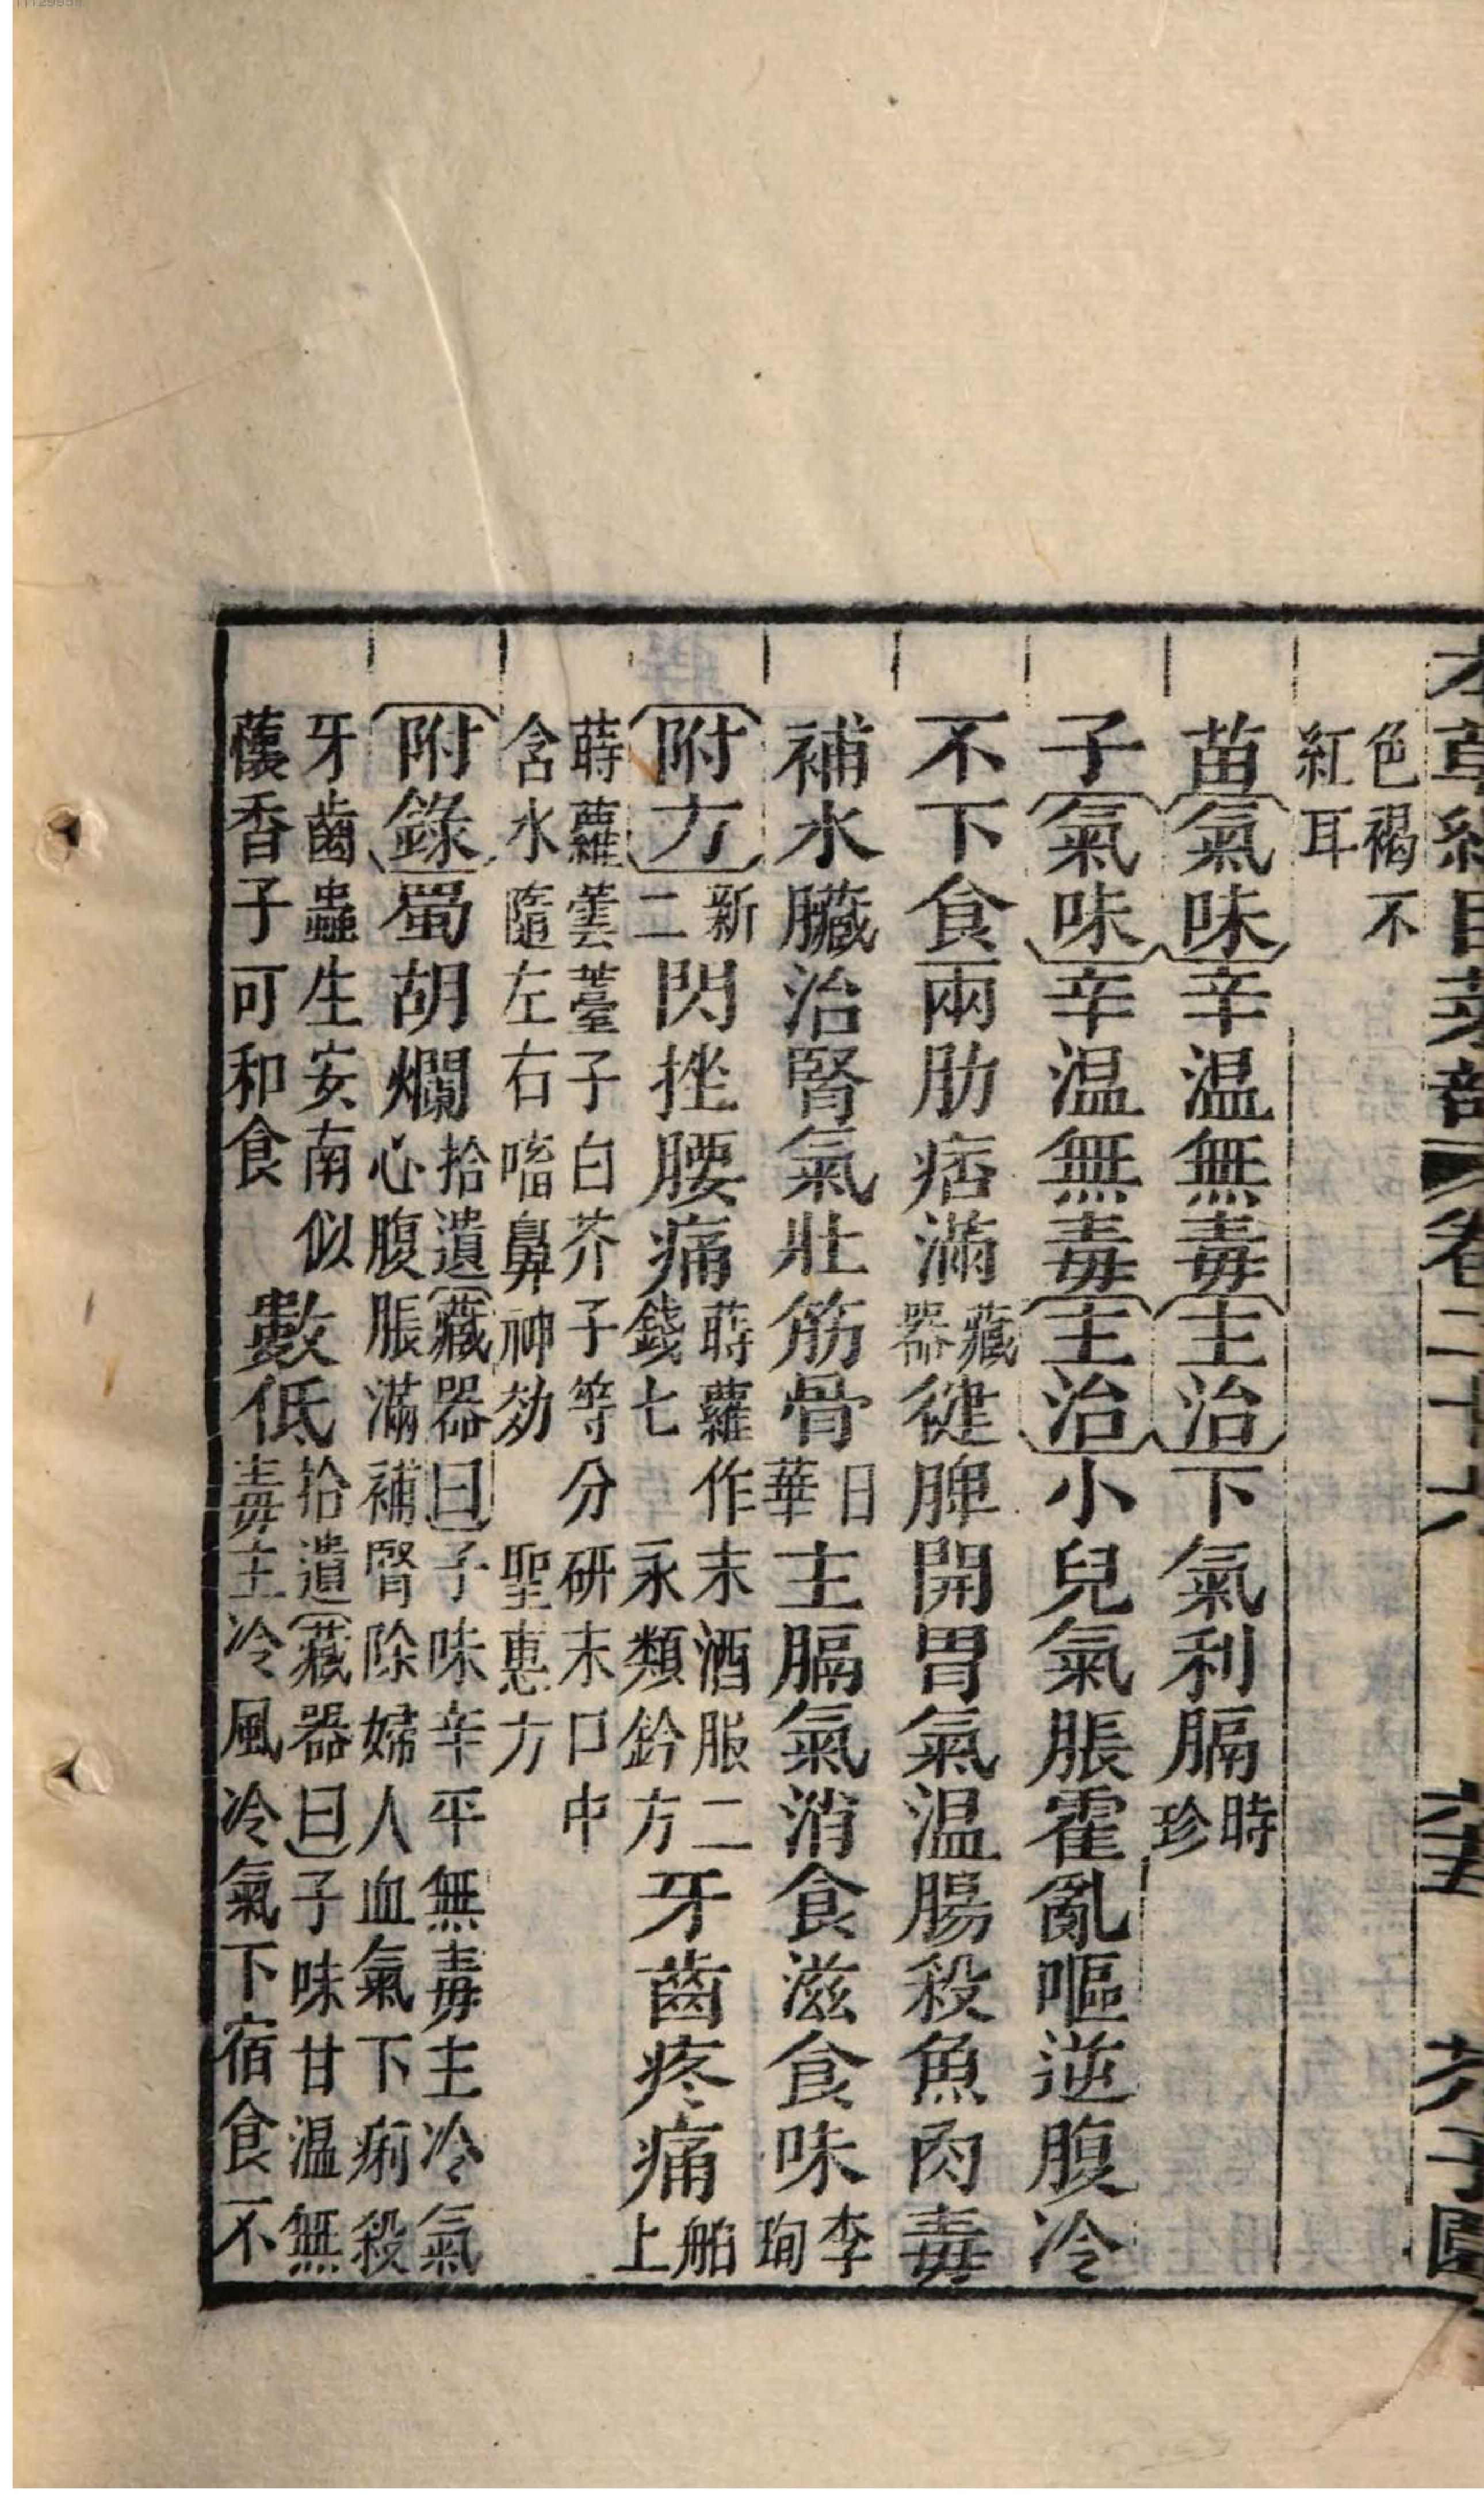 本草綱目菜部 卷二十六 芥子園
色褐不
紅耳
苗氣味辛温無毒主治下氣利膈時珍
子氣味辛温無毒主治小兒氣脹霍亂嘔逆腹冷
不下食兩肋痞滿藏器健脾開胃氣温腸殺魚肉毒
補水臟治腎氣壯筋骨日華主膈氣消食滋食味李珣
附方新二閃挫腰痛蒔蘿作末酒服二錢七永類鈐方牙齒疼痛舶上
蒔蘿蕓薹子白芥子等分研末口中
含水隨左右㗜鼻神効聖惠方
附錄蜀胡爛拾遺藏器曰子味辛平無毒主冷氣
心腹脹滿補腎除婦人血氣下痢殺
牙齒蟲生安南似
蘹香子可和食數低拾遺藏器曰子味甘温無
毒主冷風冷氣下宿食不